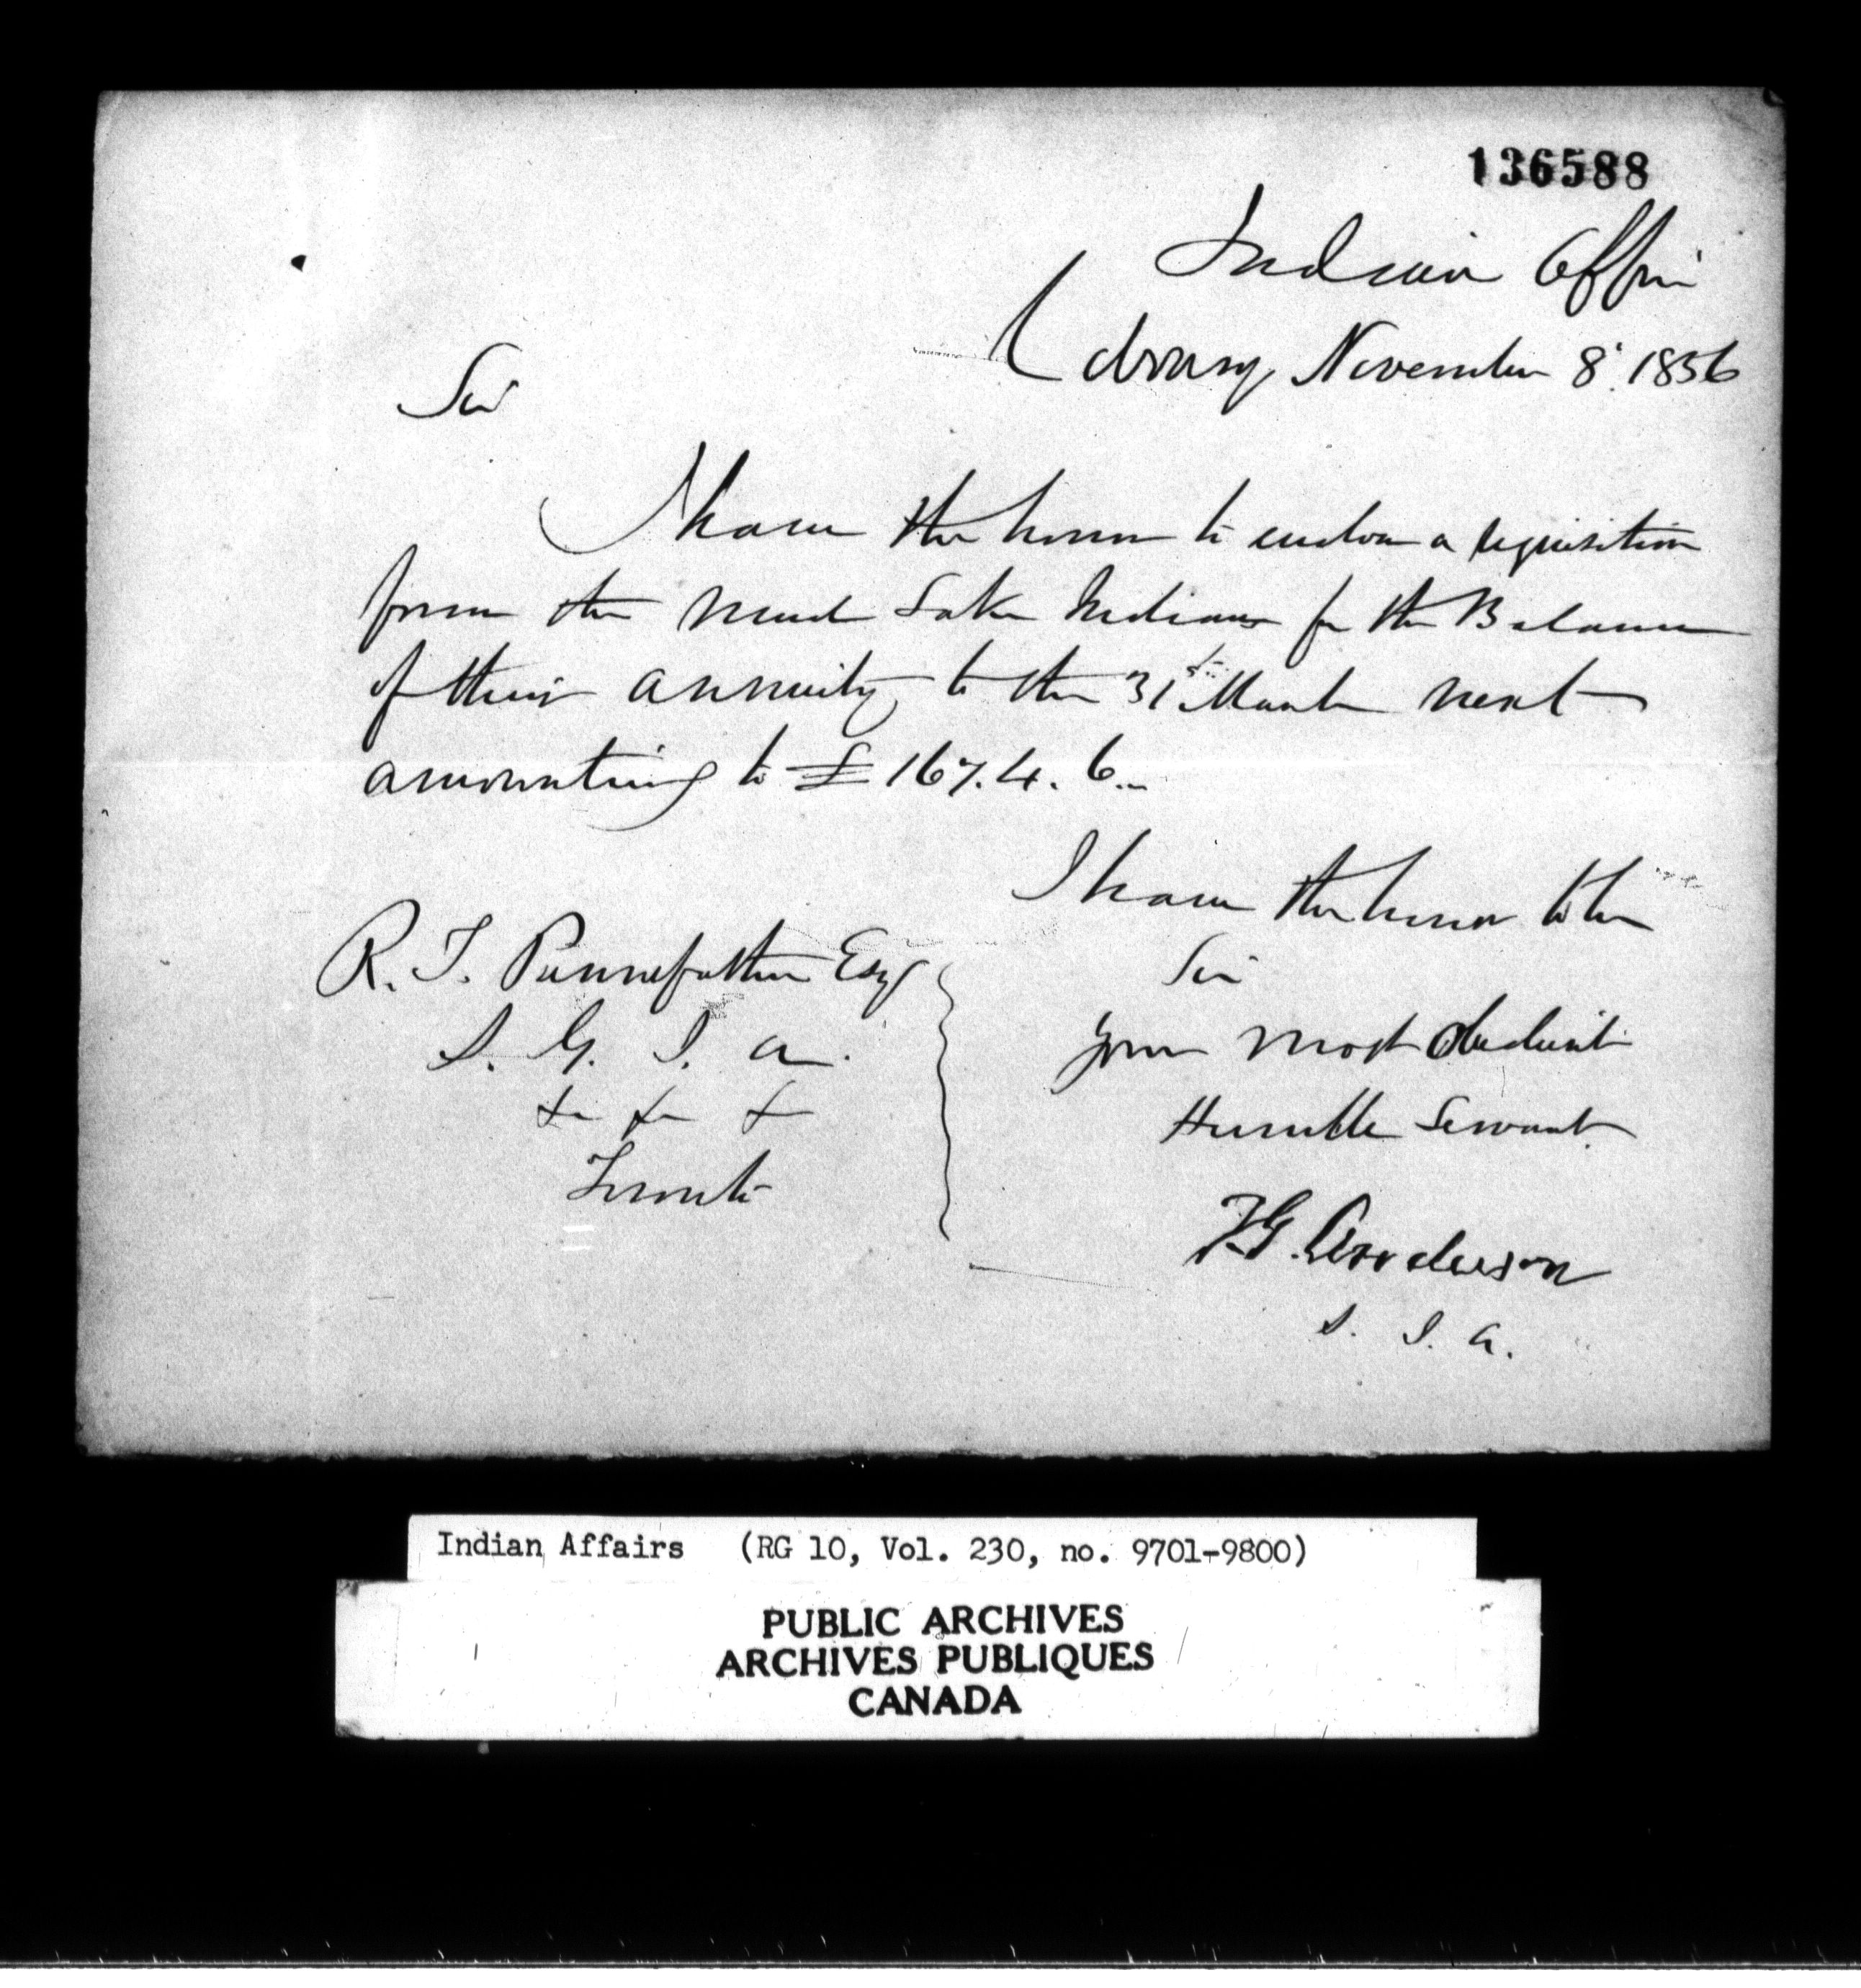 136588
Indian Office
Cobourg November 8. 1856
Sir
I have the honor to enclose a requisition
from the Mud Lake Indians for the Balance
of their annuity to the 31st March next
amounting to £167.4.6
I have the honor to be
Sir
Your most obedient
Humble Servant
T.G. Anderson
S. I. A.
R. T. Pennefather Esq
S. G. I. A.
& & &
Toronto
Indian Affairs (RG 10, Vol. 230, no. 9701-9800)
PUBLIC ARCHIVES
ARCHIVES PUBLIQUES
CANADA